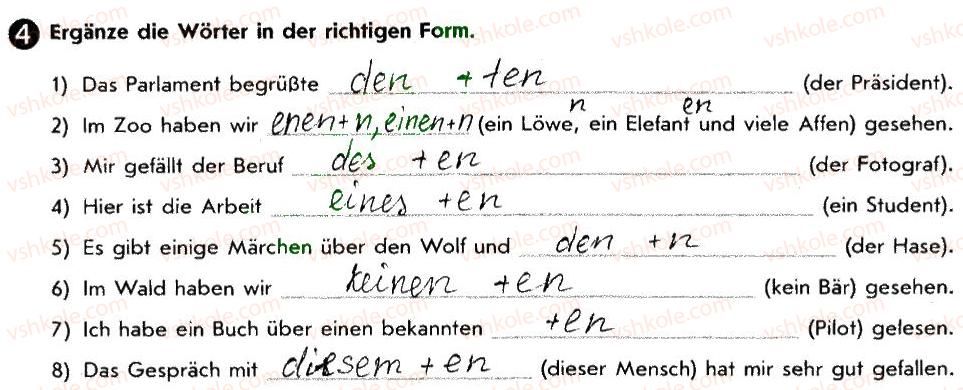 4 Ergänze die Wörter in der richtigen Form.
1) Das Parlament begrüßte den + ten (der Präsident).
n en
2) Im Zoo haben wir enen+n, einen+n (ein Löwe, ein Elefant und viele Affen) gesehen.
3) Mir gefällt der Beruf des +en (der Fotograf).
4) Hier ist die Arbeit eines +en (ein Student).
5) Es gibt einige Märchen über den Wolf und den +n (der Hase).
6) Im Wald haben wir keinen +en (kein Bär) gesehen.
7) Ich habe ein Buch über einen bekannten +en (Pilot) gelesen.
8) Das Gespräch mit diesem + en (dieser Mensch) hat mir sehr gut gefallen.